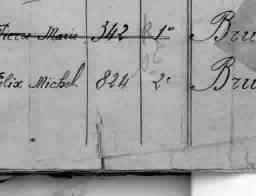 Pierre Marie 342 1º Bru
Félix Michel 824 2º Bru